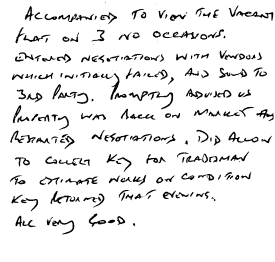 ACCOMPANIED TO VIEW THE VACANT
FLAT ON 3 NO OCCASIONS.
ENTERED NEGOTIATIONS WITH VENDORS
WHICH INITIALLY FAILED, AND SOLD TO
3RD PARTY. PROMPTLY ADVISED US
PROPERTY WAS BACK ON MARKET AND
RESTARTED NEGOTIATIONS. DID ALLOW
TO COLLECT KEY FOR TRADESMAN
TO ESTIMATE WORKS ON CONDITION
KEY RETURNED THAT EVENING.
ALL VERY GOOD.